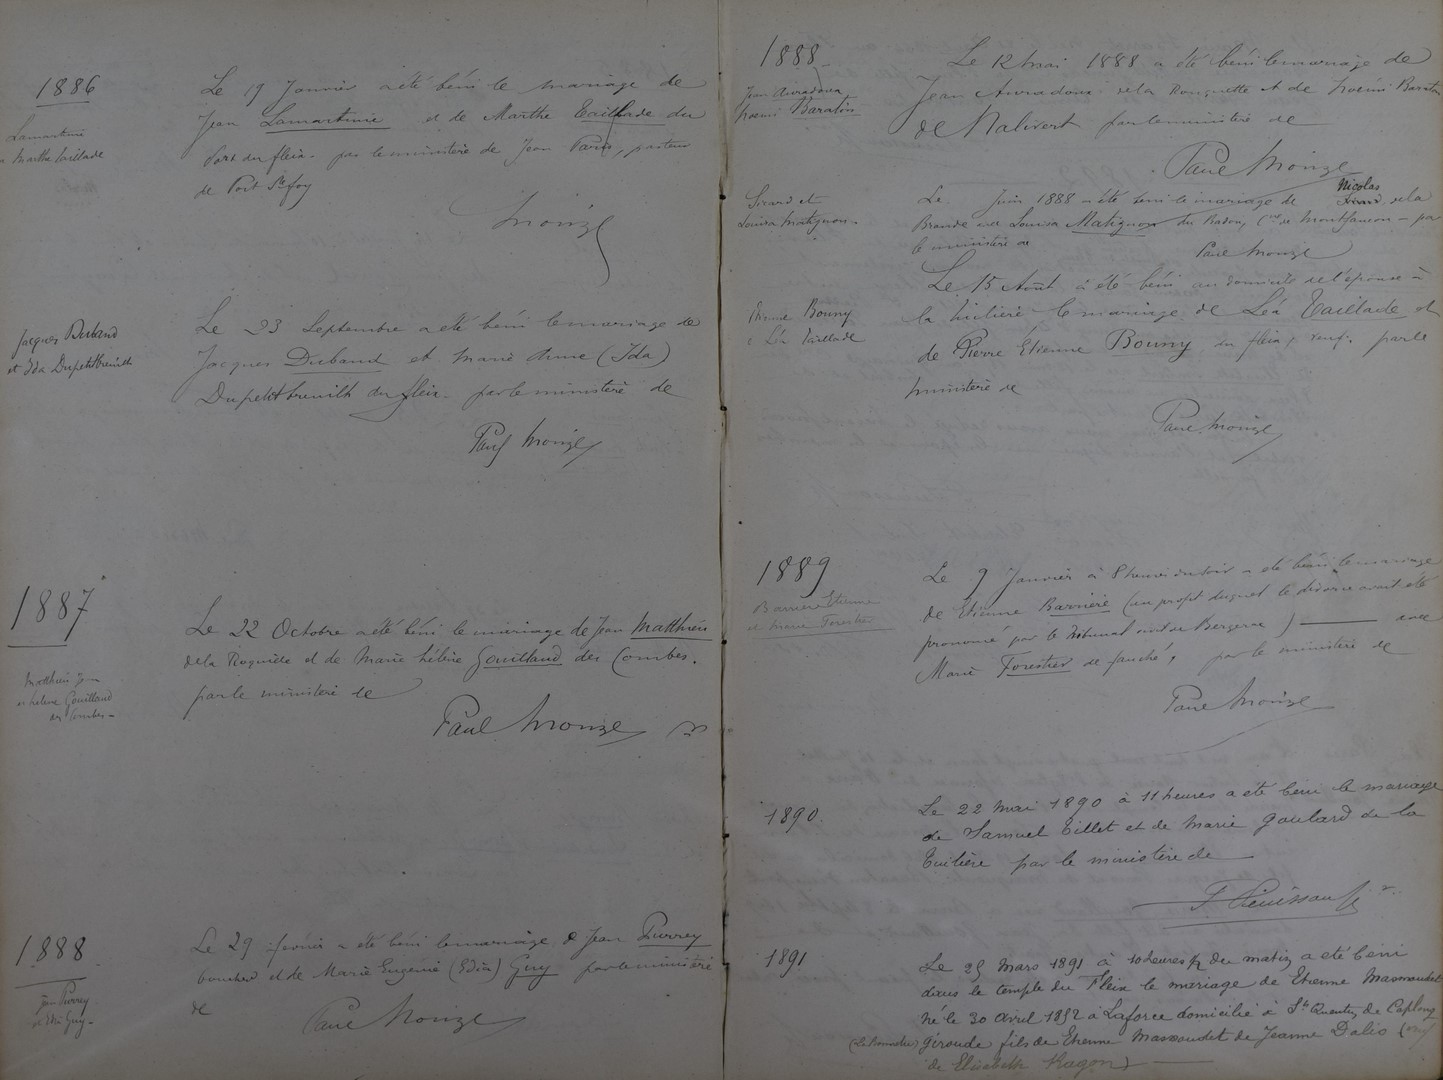 1886
Lamartine
Marthe Taillade
Le 19 Janvier a été béni le mariage de
Jean Lamartine et de Marthe Taillade du
Port du fleix. par le ministère de Jean Paris, pasteur
de Port Ste foy
Monge
Jacques Dubaud
et Ida Dupetitbreuilh
Le 23 Septembre a été béni le mariage de
Jacques Dubaud et Marie Anne (Ida)
Dupetitbreuilh du fleix. par le ministère de
Paul Monge
1887
Matthieu Jean
et helene Gouilland
des Combes
Le 22 Octobre a été béni le mariage de Jean Matthieu
de la Roquide et de Marie hélène Gouilland des Combes.
par le ministère de
Paul Monge
1888
jean Purrey
et Guy
Le 29 février a été béni le mariage de Jean Purrey
boucher et de Marie Eugénie (Edia) Guy par le ministère
de
Paul Monge
1888
Jean Auradoux
Noémi Baraton
Le 12 Mai 1888 a été béni le mariage de
Jean Auradoux de la Rouquette et de Noémi Baraton
de par le ministère de
Paul Monge
Sicard et
Louisa Matignon
Le Juin 1888 a été béni le mariage de Nicolas
Sicard de la
et de Louisa Matignon du Cne de Montfaucon - par
le ministère de
Paul Monge
Bonny
Léa Taillade
Le 15 Août a été béni au domicile de l'épouse à
la tuilière le mariage de Léa Taillade et
de Pierre Etienne Bonny du fleix, veuf. par le
ministère de
Paul Monge
1889
Barrière Etienne
et Marie Forestier
Le 9 Janvier à 8 heures du soir a été béni le mariage
de Etienne Barrière (au profit duquel le divorce avait été
prononcé par le Tribunal civil de Bergerac) avec
Marie Forestier de par le ministère de
Paul Monge
1890.
Le 22 Mai 1890 à 11 heures a été béni le mariage
de Samuel Tillet et de Marie Goulard de la
Tuilière par le ministère de
1891
Le 25 Mars 1891 à 10 heures ½ du matin a été béni
dans le temple du Fleix le mariage de Etienne Massoudet
né le 30 Avril 1852 à Laforce domicilié à St Quentin de Caplong
Gironde fils de Etienne Massoudet de Jeanne Dalio
de Elisabeth Ragon